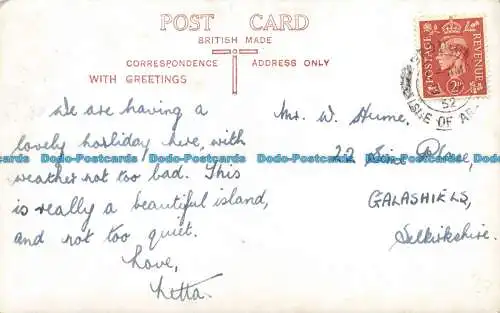 POST CARD
BRITISH MADE
CORRESPONDENCE ADDRESS ONLY
WITH GREETINGS
We are having a
lovely holiday here, with
weather not too bad. This
is really a beautiful island,
and not too quiet.
Love,
Netta.
Mr. W. Hume,
22 Place,
GALASHIELS,
Selkirkshire.
POSTAGE REVENUE
2D
52
ISLE OF
Dodo-Postcards Dodo-Postcards Dodo-Postcards Dodo-Postcards Dodo-Postcards
Dodo-Postcards Dodo-Postcards Dodo-Postcards Dodo-Postcards Dodo-Postcards